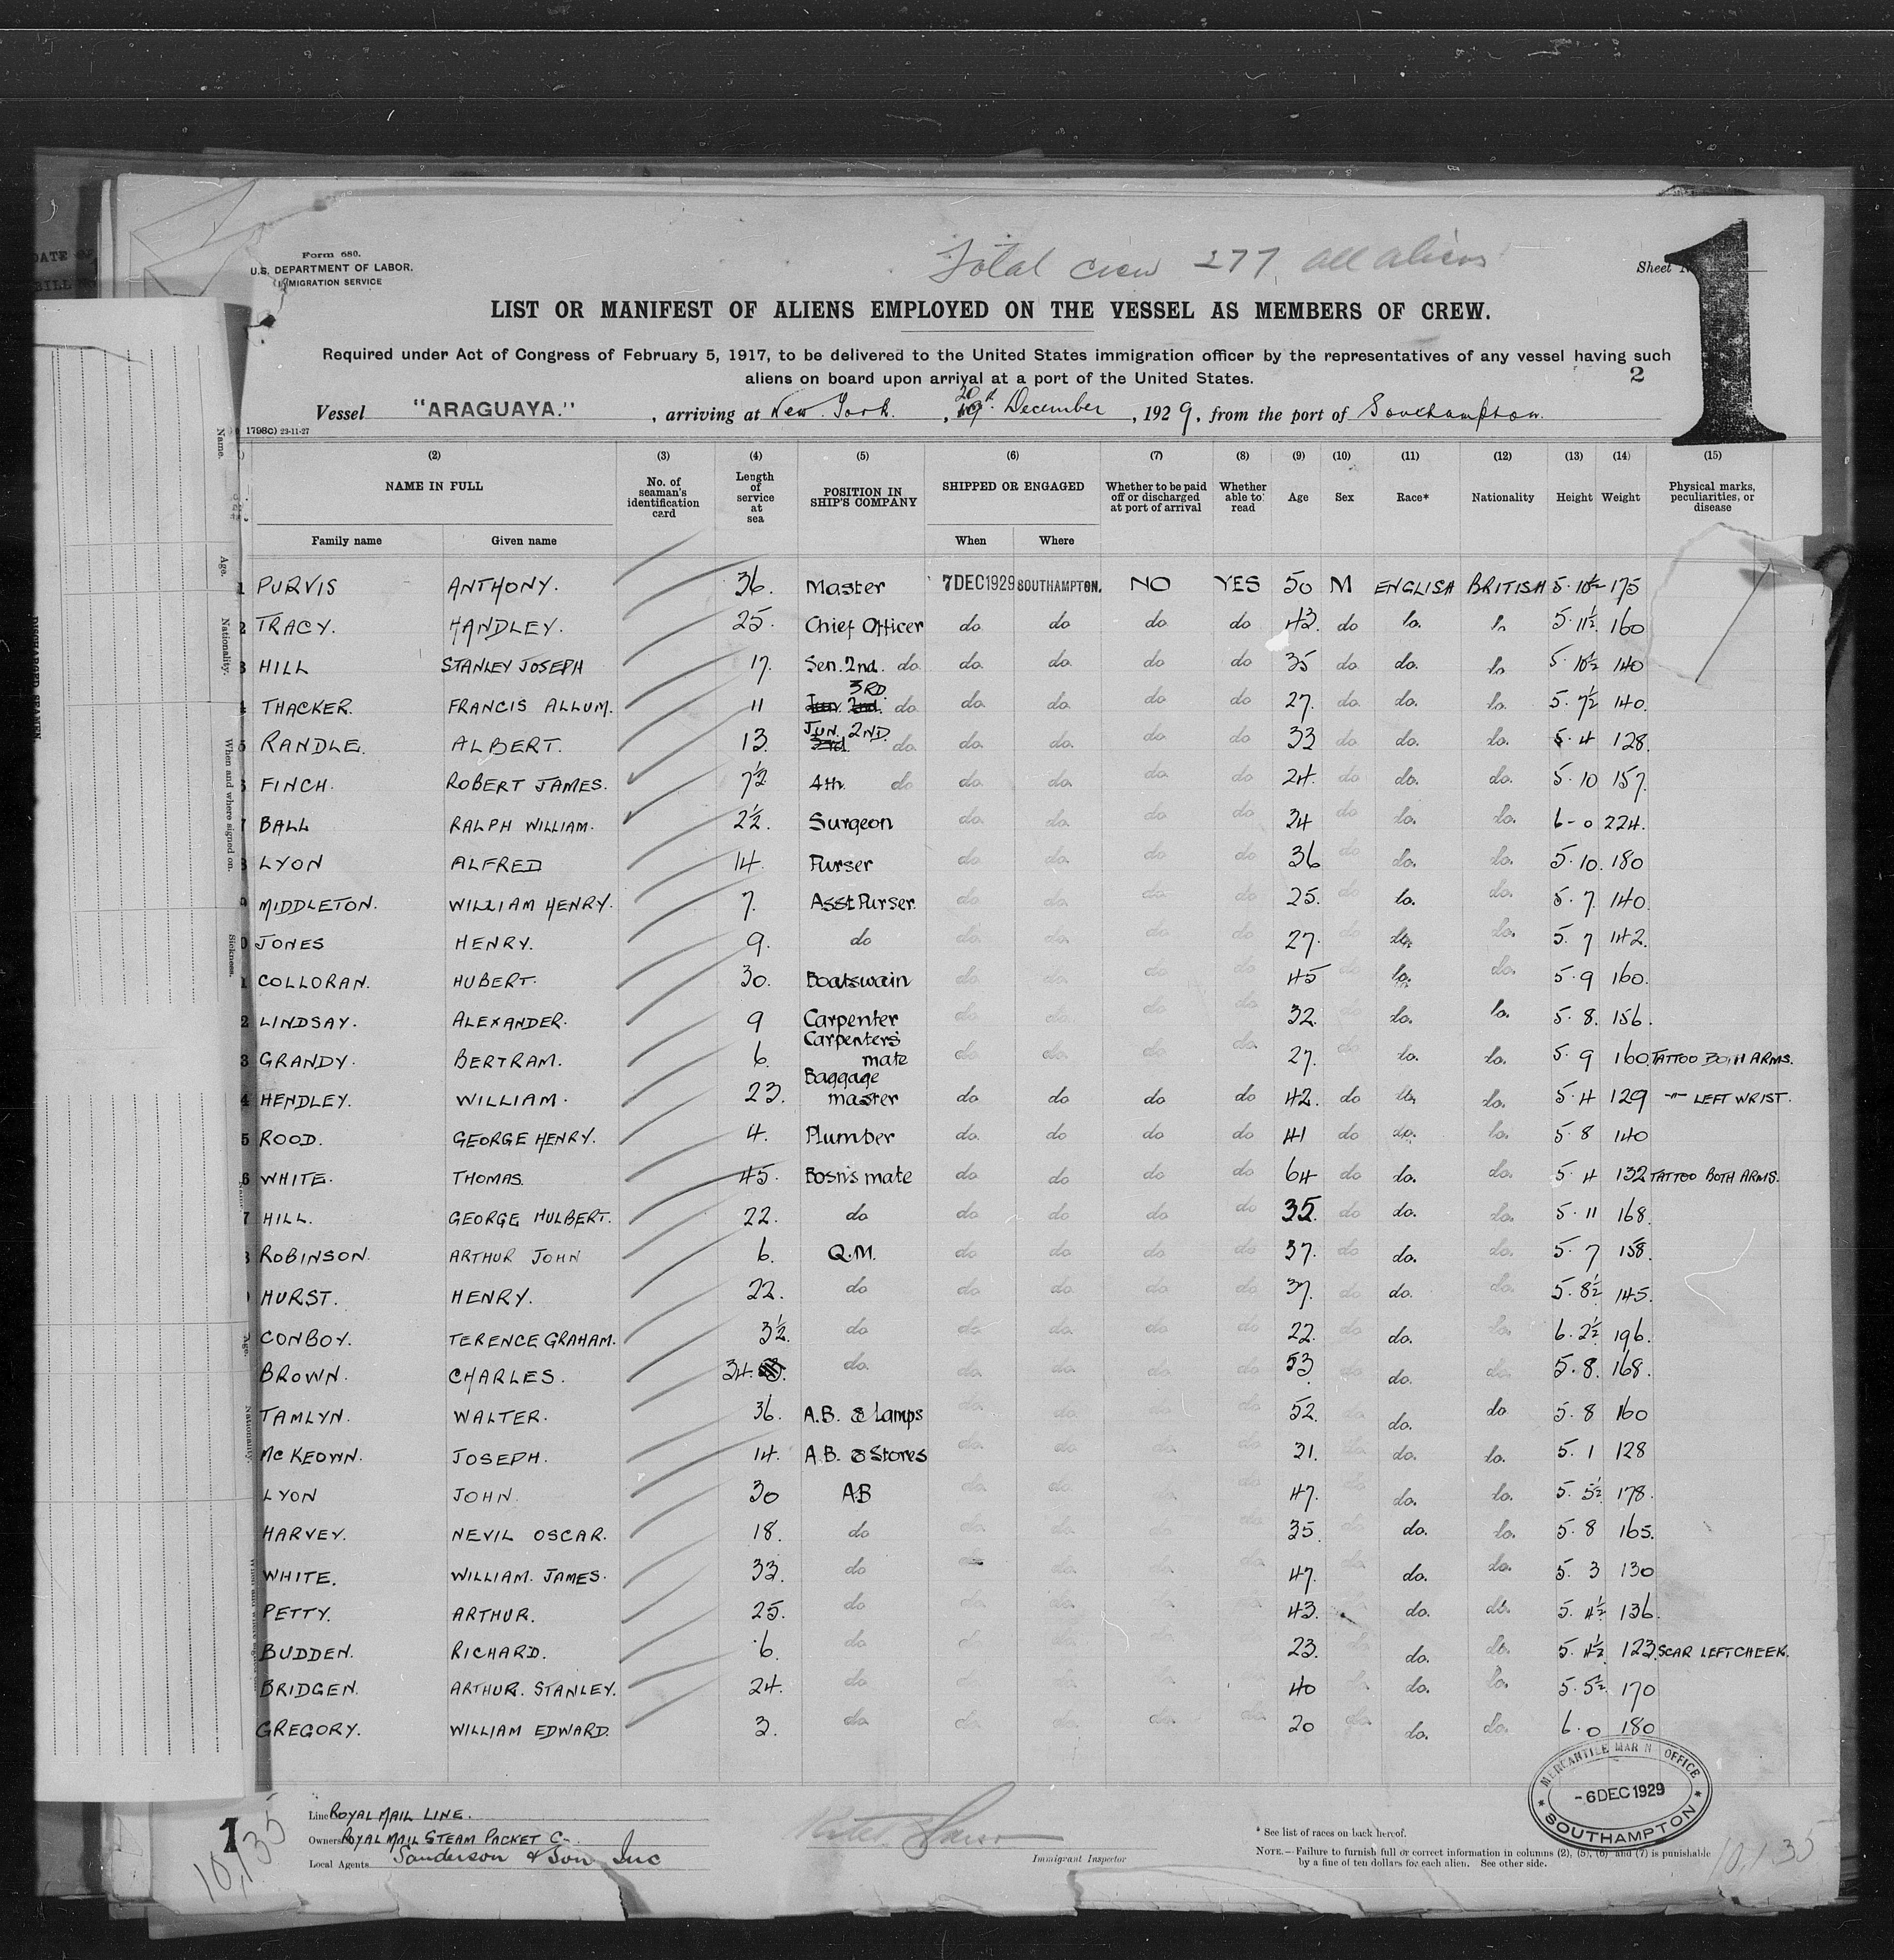 Total crew 277, all aliens
Form 680.
U.S. DEPARTMENT OF LABOR.
IMMIGRATION SERVICE
Sheet
1
LIST OR MANIFEST OF ALIENS EMPLOYED ON THE VESSEL AS MEMBERS OF CREW.
Required under Act of Congress of February 5, 1917, to be delivered to the United States immigration officer by the representatives of any vessel having such
aliens on board upon arrival at a port of the United States.
2
Vessel "ARAGUAYA." , arriving at New York. , 20th December , 1929, from the port of Southampton.
1798c) 23-11-27
(2) (3) (4) (5) (6) (7) (8) (9) (10) (11) (12) (13) (14) (15)
NAME IN FULL No. of seaman's identification card Length of service at sea POSITION IN SHIP'S COMPANY SHIPPED OR ENGAGED Whether to be paid off or discharged at port of arrival Whether able to read Age Sex Race* Nationality Height Weight Physical marks, peculiarities, or disease
Family name Given name When Where
1 PURVIS ANTHONY. 36. Master 7 DEC 1929 SOUTHAMPTON. NO YES 50 M ENGLISH BRITISH 5·10½ 175
2 TRACY. HANDLEY. 25. Chief Officer do do do do 43. do do. do 5·11½ 160
3 HILL STANLEY JOSEPH 17. Sen. 2nd. do do. do do do 35 do do. do 5·10½ 140
4 THACKER. FRANCIS ALLUM. 11 3RD do do. do. do do 27. do do. do. 5·7½ 140.
5 RANDLE. ALBERT. 13. JUN. 2ND. do do. do. do do 33 do do. do. 5·4 128.
6 FINCH. ROBERT JAMES. 7½ 4th. do do. do. do do 24. do do. do. 5·10 157.
7 BALL RALPH WILLIAM. 2½. Surgeon do. do. do do 34 do do. do. 6-0 224.
8 LYON ALFRED 14. Purser do do. do do 36 do do. do. 5·10. 180
9 MIDDLETON. WILLIAM HENRY. 7. Asst Purser. do do. do do 25. do do. do. 5·7. 140.
0 JONES HENRY. 9. do do do. do do 27. do do. do. 5.7 142.
1 COLLORAN. HUBERT. 30. Boatswain do do. do do 45 do do. do. 5·9 160.
2 LINDSAY. ALEXANDER. 9 Carpenter do do. do do 32. do do. do. 5·8. 156.
3 GRANDY. BERTRAM. 6. Carpenters mate do do. do do. 27. do do. do. 5·9 160. TATTOO BOTH ARMS.
4 HENDLEY. WILLIAM. 23. Baggage master do do do do 42. do do. do. 5·4 129 -"- LEFT WRIST.
5 ROOD. GEORGE HENRY. 4. Plumber do. do do do 41 do do. do. 5·8 140
6 WHITE. THOMAS. 45. Bosn's mate do do do do 64 do do. do. 5·4 132 TATTOO BOTH ARMS.
7 HILL. GEORGE HULBERT. 22. do do do do do 35. do do. do. 5·11 168.
8 ROBINSON. ARTHUR JOHN 6. Q.M. do do do do 37. do do. do. 5·7 158.
HURST. HENRY. 22. do do. do. do do 37. do do. do. 5·8½ 145.
CONBOY. TERENCE GRAHAM. 3½. do do. do. do do 22. do do. do. 6·2½ 196.
BROWN. CHARLES. 34. do. do. do. do do 53. do do. do. 5·8. 168.
TAMLYN. WALTER. 36. A.B. & Lamps do. do. do. do 52. do do. do 5·8 160
McKEOWN. JOSEPH. 14. A.B. & Stores do. do. do. do 31. do do. do. 5.1 128
LYON JOHN. 30 AB do. do. do. do 47. do do. do. 5.5½ 178.
HARVEY. NEVIL OSCAR. 18. do do do. do. do 35. do do. do. 5.8 165.
WHITE. WILLIAM. JAMES. 33. do do. do. do. 47. do. do. 5.3 130
PETTY. ARTHUR. 25. do do. do. do. 43. do. do. 5.4½ 136.
BUDDEN. RICHARD. 6. do do. do. 23. do. do. 5.4½ 123. SCAR LEFT CHEEK.
BRIDGEN. ARTHUR. STANLEY. 24. do do. do. 40 do. do. 5·5½ 170
GREGORY. WILLIAM EDWARD. 3. do. do. do. do. do 20 do. do. do. 6.0 180
MERCANTILE MARINE OFFICE
-6 DEC 1929
SOUTHAMPTON
Line ROYAL MAIL LINE.
Owners ROYAL MAIL STEAM PACKET Co.
Local Agents Sanderson & Son, Inc
Immigrant Inspector
* See list of races on back hereof.
NOTE.—Failure to furnish full or correct information in columns (2), (5), (6) and (7) is punishable
by a fine of ten dollars for each alien. See other side.
1
10,135
10,135
Name.
Age.
Nationality.
When and where signed on.
Sickness.
Age.
Nationality.
DISCHARGED SEAMEN